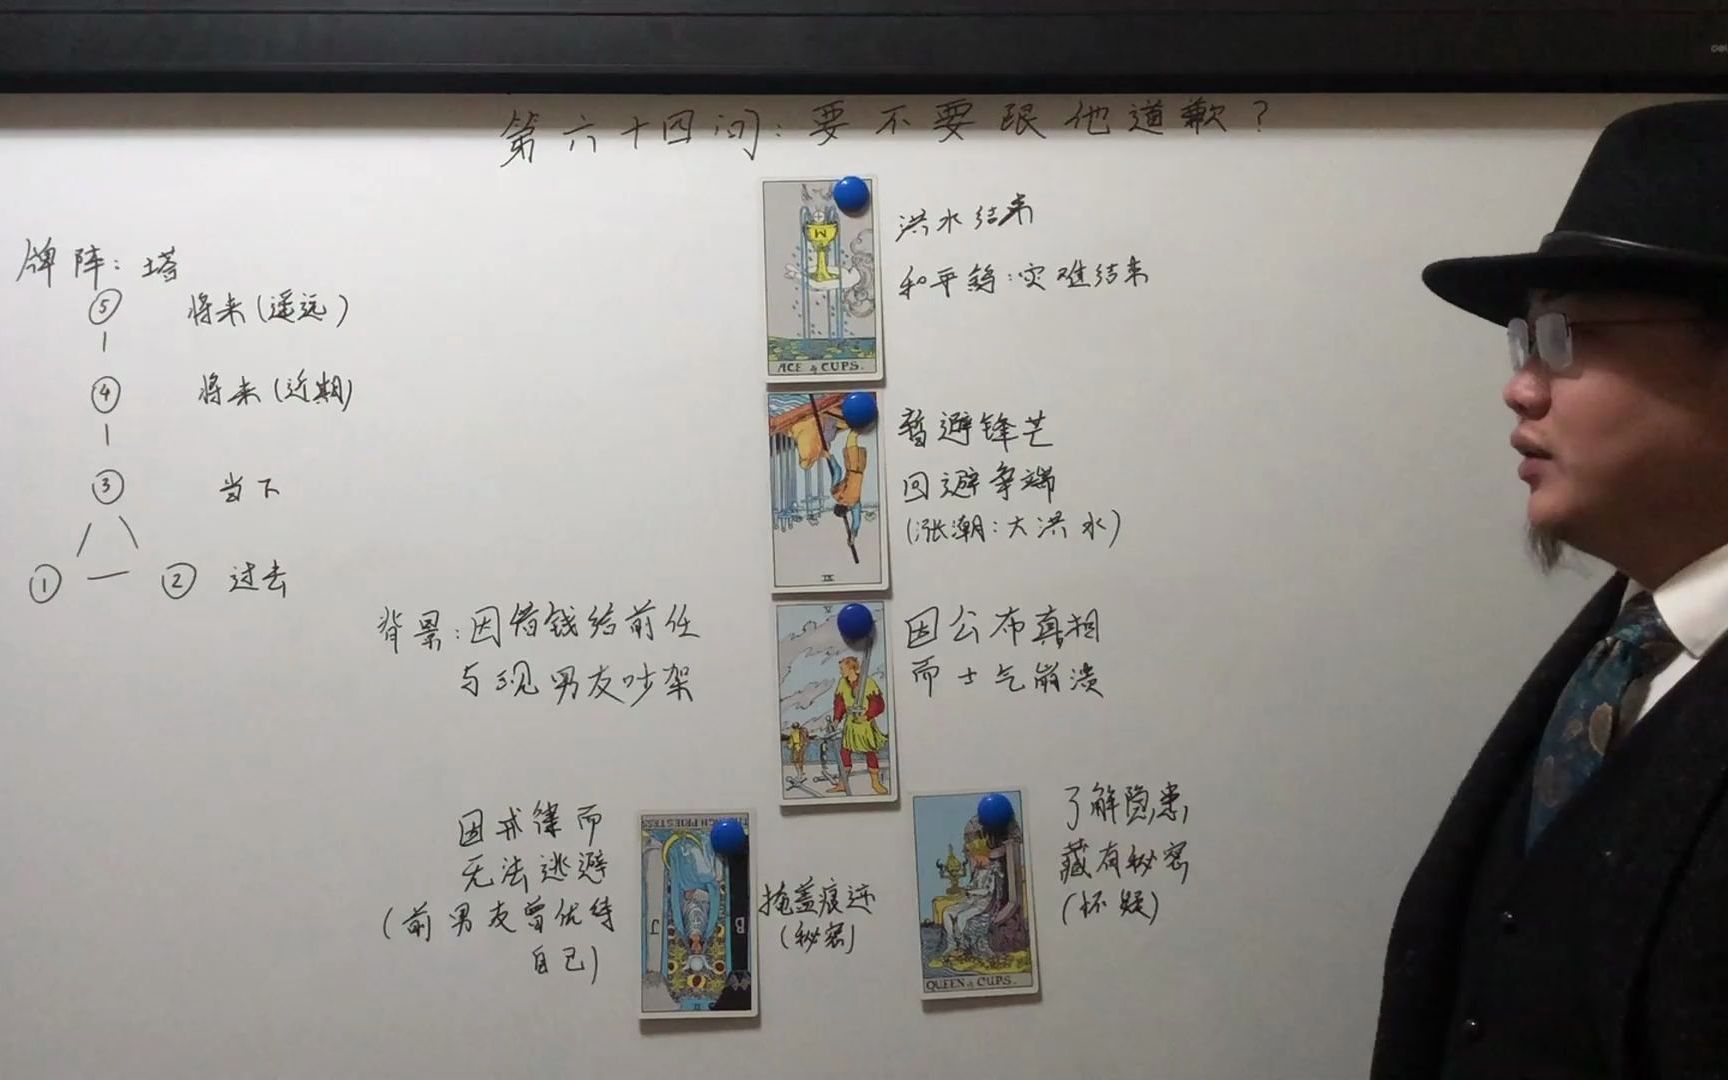 第六十四问：要不要跟他道歉？
牌阵：塔
⑤ 将来（遥远）
④ 将来（近期）
③ 当下
① ② 过去
ACE of CUPS.
洪水结束
和平鸽：灾难结束
暂避锋芒
回避争端
（涨潮：大洪水）
背景：因借钱给前任
与现男友吵架
因公布真相
而士气崩溃
因戒律而
无法逃避
（前男友曾优待
自己）
THE HIGH PRIESTESS
B
J
II
掩盖痕迹
（秘密）
QUEEN of CUPS.
了解隐患
藏有秘密
（怀疑）